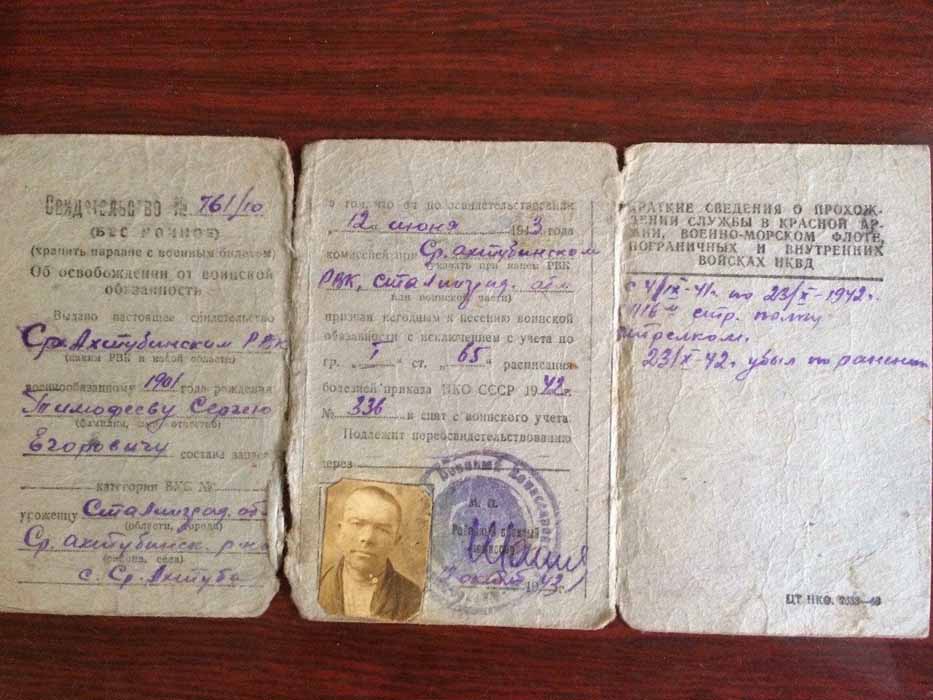 Свидетельство № 761/10
(БЕССРОЧНОЕ)
(хранить наравне с военным билетом)
Об освобождении от воинской
обязанности
Выдано настоящее свидетельство
Ср. Ахтубинском РВК
(каким РВК и какой области)
военнообязанному 1901 года рождения
Тимофееву Сергею
Егоровичу состава запаса
категория ВУС №
уроженцу Сталинград. обл.
(области, города)
Ср. ахтубинск. р-на
(района, села)
с. Ср. Ахтуба
в том, что он по освидетельствовании
"12" июня 1943 года
комиссией при Ср. ахтубинском
(указать при каком РВК
РВК, Сталинград. обл
или воинской части)
признан негодным к несению воинской
обязанности с исключением с учета по
гр. "I" ст. "65" расписания
болезней приказа НКО СССР 1942 г.
№ 336 и снят с воинского учета.
Подлежит переосвидетельствованию
через
Военный Комиссариат
М. П.
Районный военный
комиссар
КРАТКИЕ СВЕДЕНИЯ О ПРОХОЖ-
ДЕНИИ СЛУЖБЫ В КРАСНОЙ АР-
МИИ, ВОЕННО-МОРСКОМ ФЛОТЕ,
ПОГРАНИЧНЫХ И ВНУТРЕННИХ
ВОЙСКАХ НКВД
с 4/IX-41г. по 23/X-1942г.
стр. полку
стрелком.
23/X 42г. убыл по ранению
ЦТ НКО.